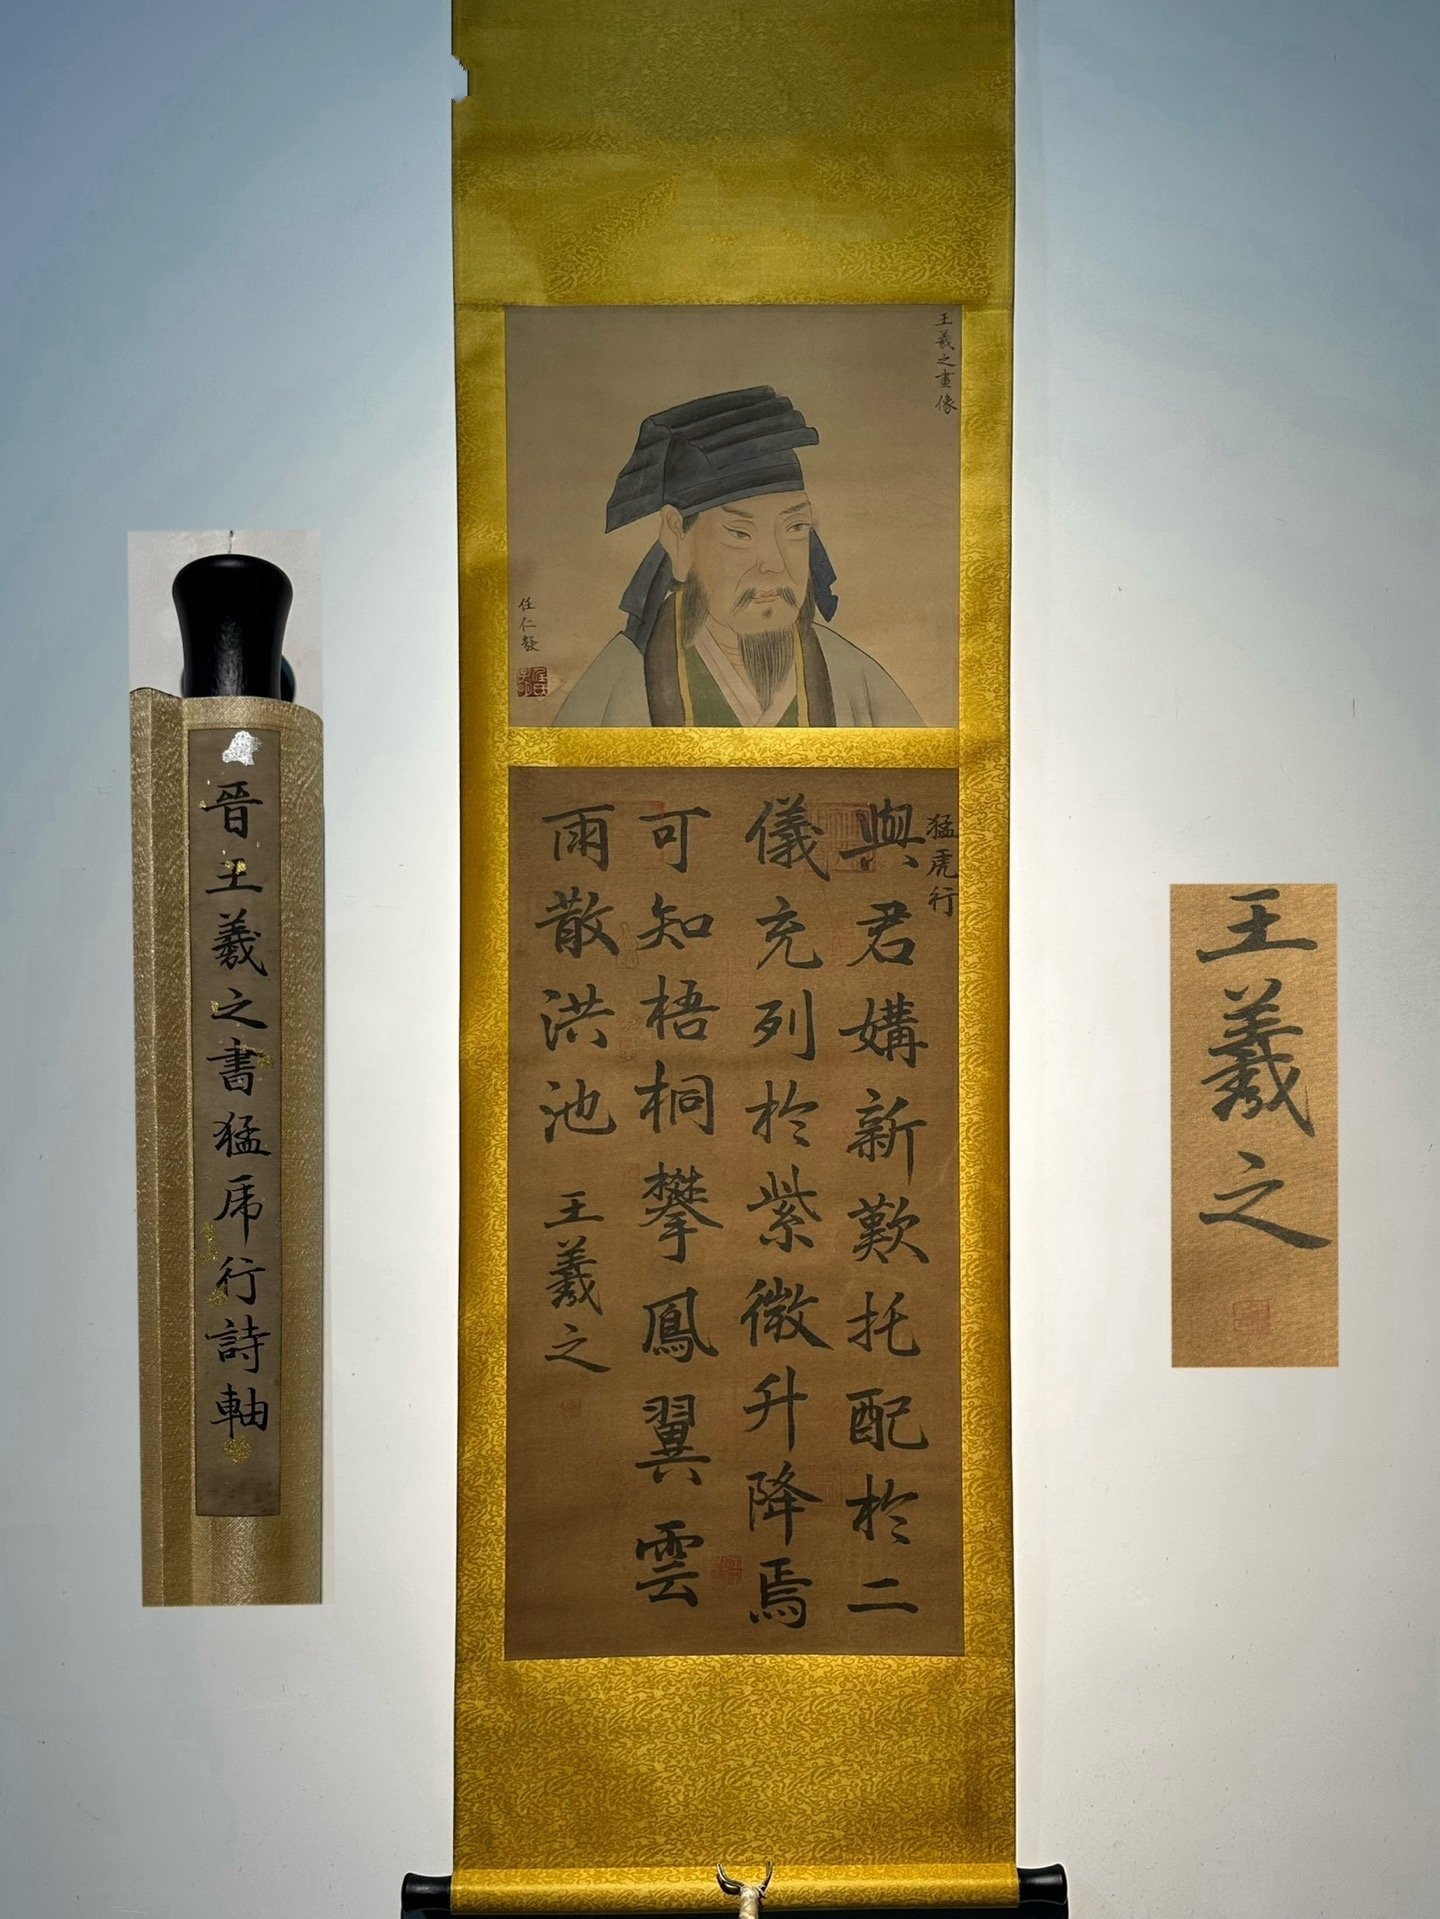 王羲之畫像
任仁發
猛虎行
與君媾新歡托配於二
儀充列於紫微升降焉
可知梧桐攀鳳翼雲
雨散洪池
王羲之
晉王羲之書猛虎行詩軸
王羲之